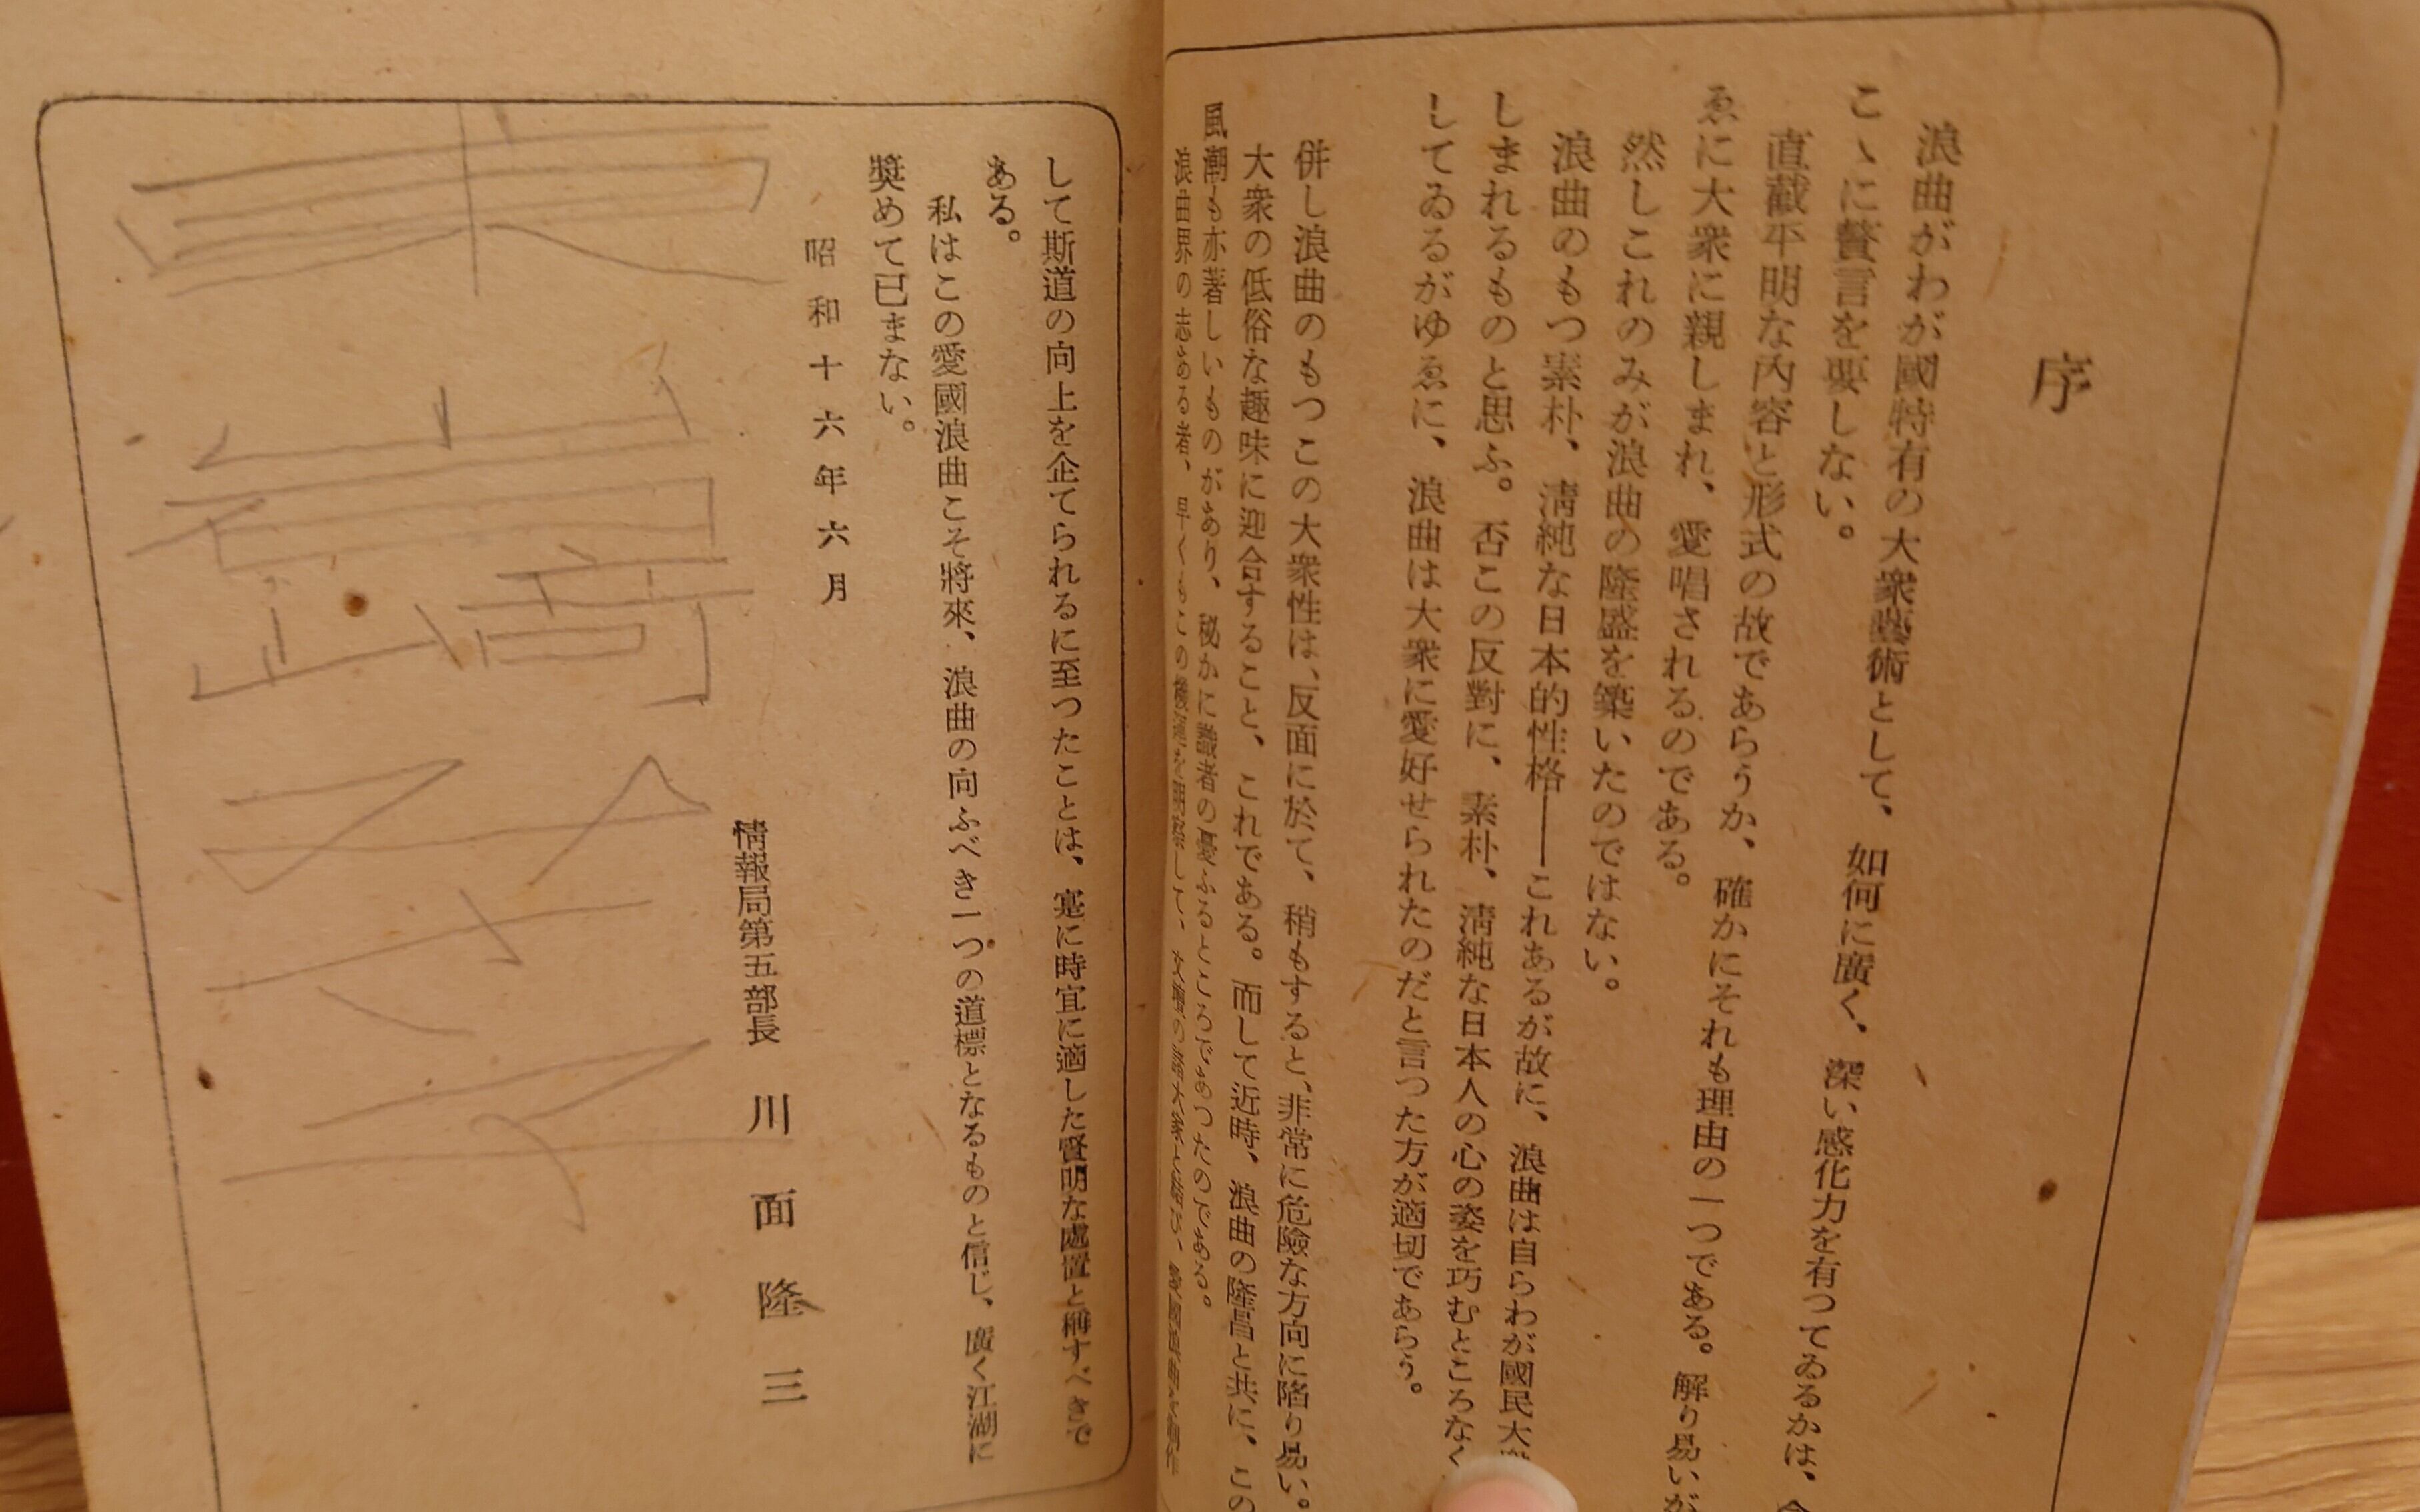 序
浪曲がわが國特有の大衆藝術として、如何に廣く、深い感化力を有つてゐるかは、今
こゝに贅言を要しない。
直截平明な内容と形式の故であらうか、確かにそれも理由の一つである。解り易いが
ゑに大衆に親しまれ、愛唱されるのである。
然しこれのみが浪曲の隆盛を築いたのではない。
浪曲のもつ素朴、淸純な日本的性格——これあるが故に、浪曲は自らわが國民大衆
しまれるものと思ふ。否この反對に、素朴、淸純な日本人の心の姿を巧むところなく
してゐるがゆゑに、浪曲は大衆に愛好せられたのだと言つた方が適切であらう。
併し浪曲のもつこの大衆性は、反面に於て、稍もすると、非常に危險な方向に陷り易い。
大衆の低俗な趣味に迎合すること、これである。而して近時、浪曲の隆昌と共に、この
風潮も亦著しいものがあり、秘かに識者の憂ふるところであつたのである。
浪曲界の志ある者、早くもこの
して斯道の向上を企てられるに至つたことは、寔に時宜に適した賢明な處置と稱すべきで
ある。
私はこの愛國浪曲こそ將來、浪曲の向ふべき一つの道標となるものと信じ、廣く江湖に
奬めて已まない。
昭和十六年六月
情報局第五部長 川面隆三